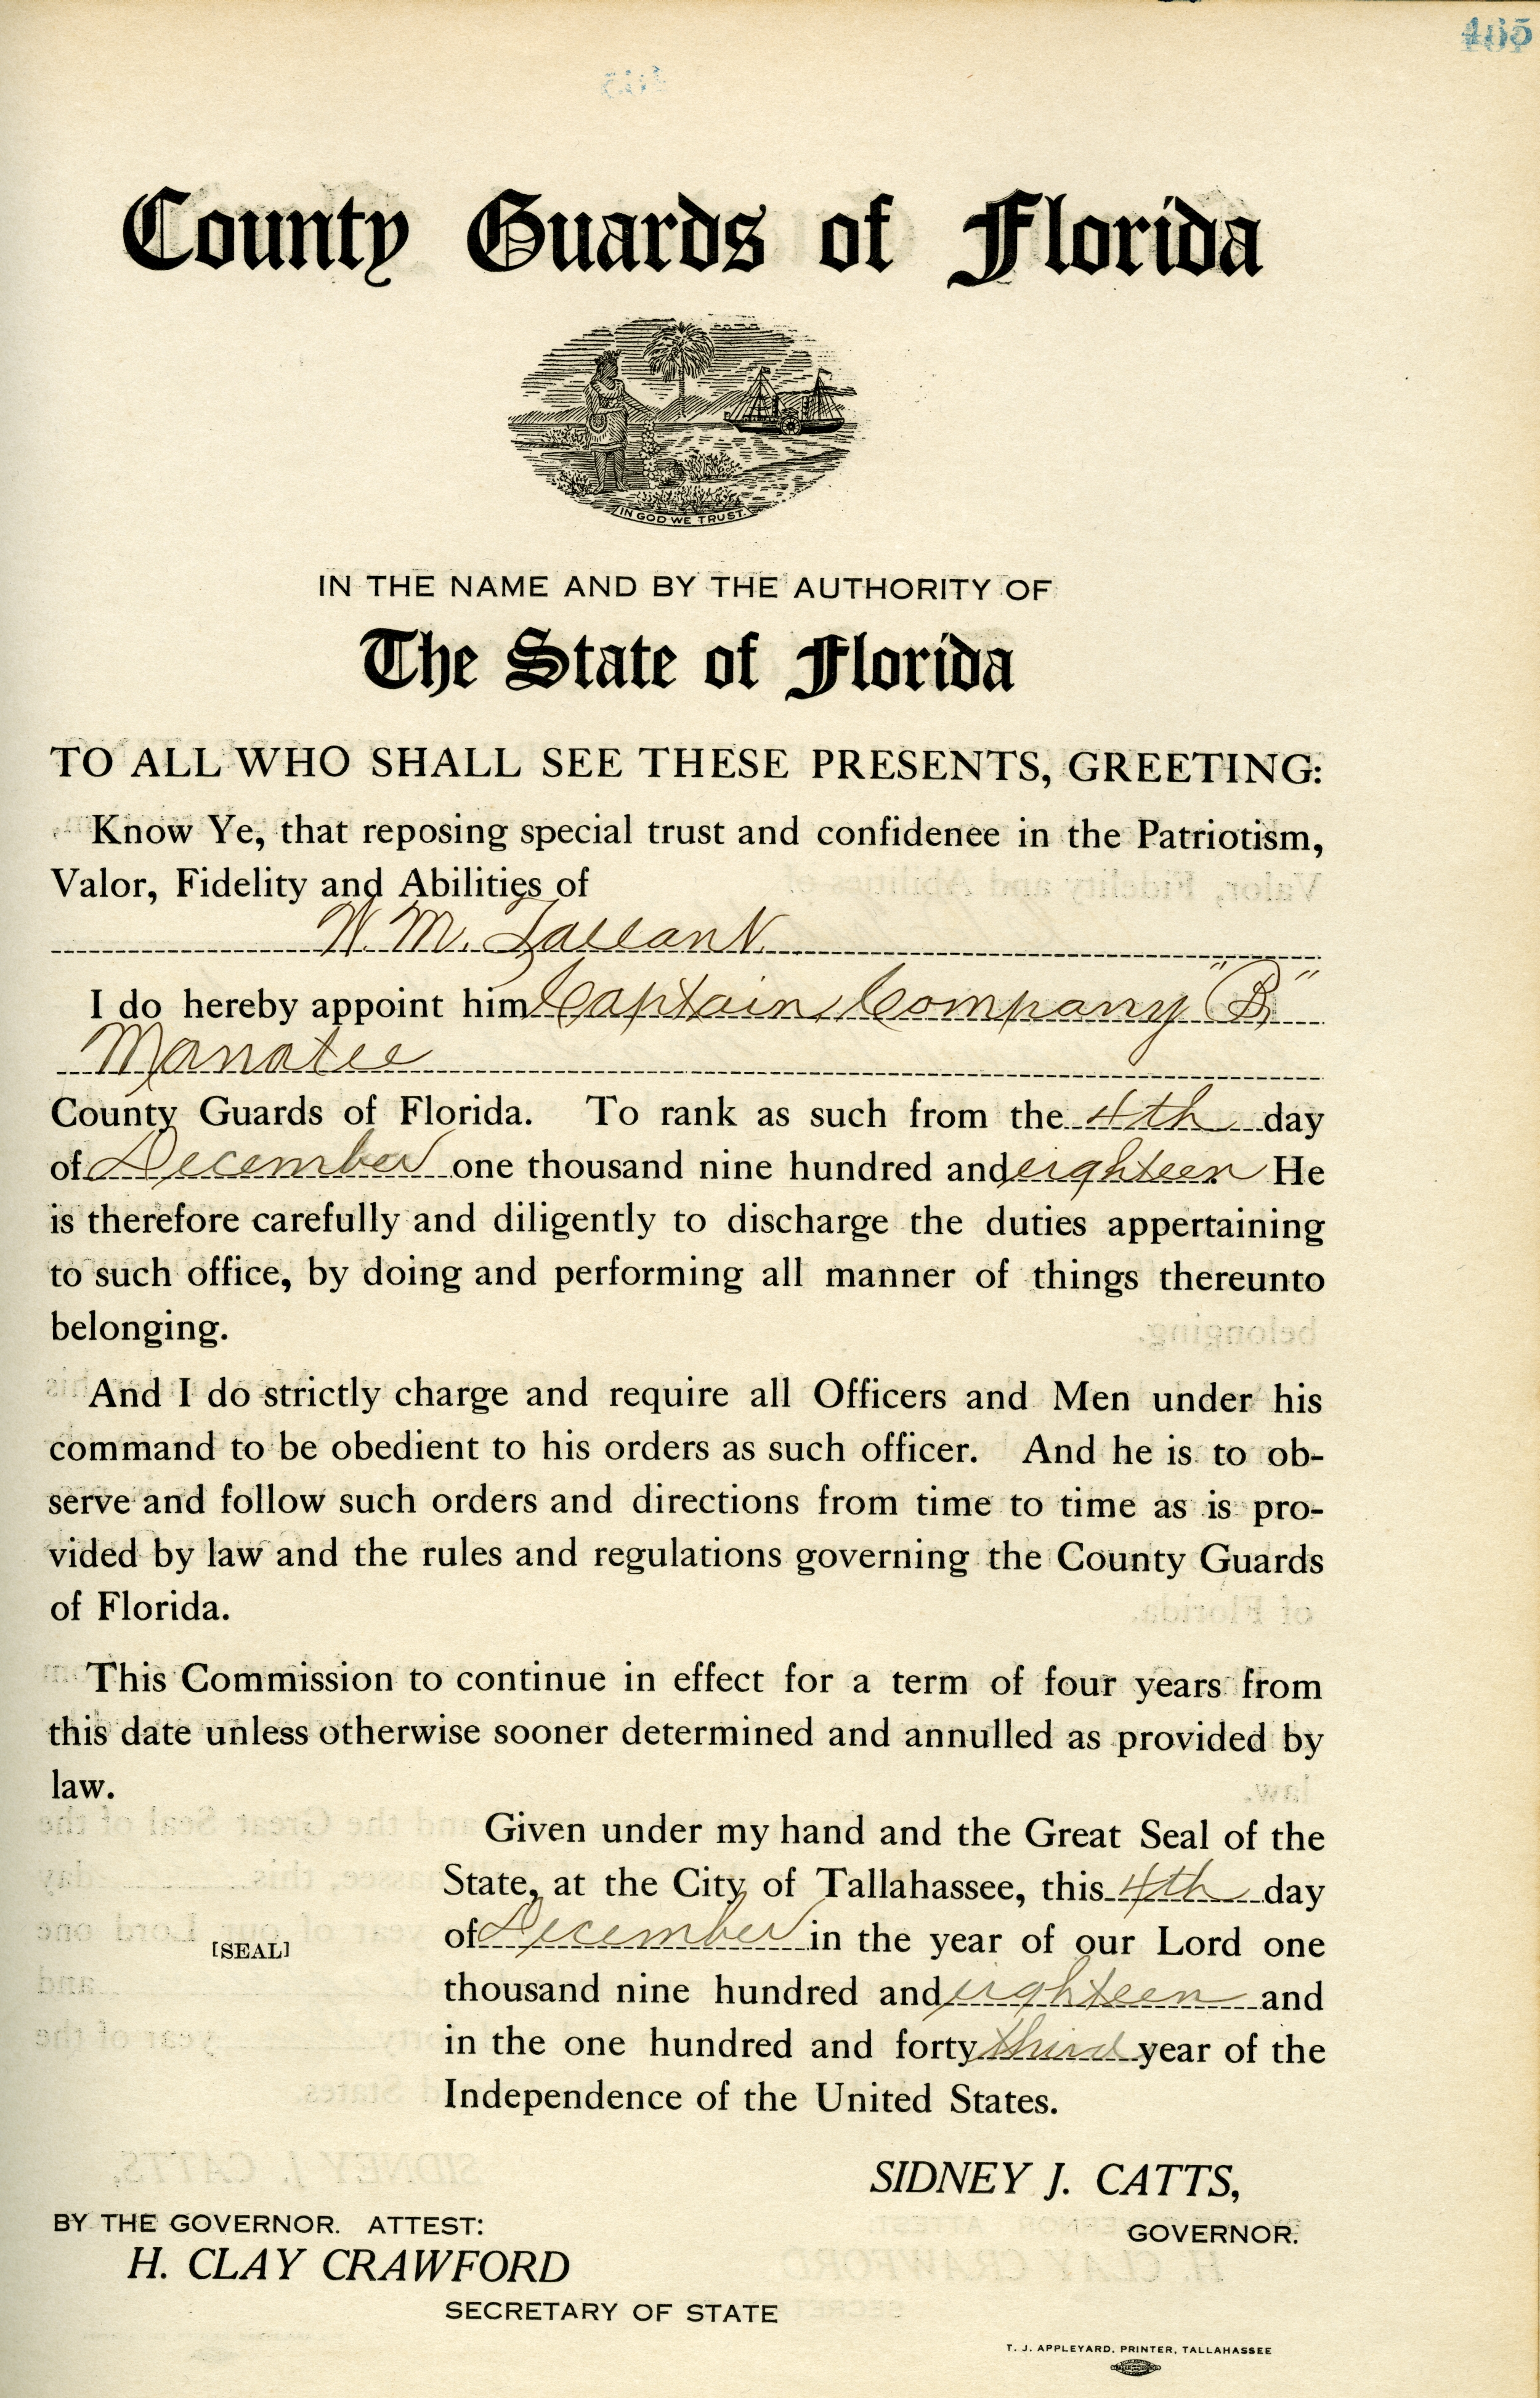 465
County Guards of Florida
IN GOD WE TRUST.
IN THE NAME AND BY THE AUTHORITY OF
The State of Florida
TO ALL WHO SHALL SEE THESE PRESENTS, GREETING:
Know Ye, that reposing special trust and confidenee in the Patriotism,
Valor, Fidelity and Abilities of
W. M. Tallant
I do hereby appoint him Captain, Company "B"
Manatee
County Guards of Florida. To rank as such from the 4th day
of December one thousand nine hundred and eighteen He
is therefore carefully and diligently to discharge the duties appertaining
to such office, by doing and performing all manner of things thereunto
belonging.
And I do strictly charge and require all Officers and Men under his
command to be obedient to his orders as such officer. And he is to ob-
serve and follow such orders and directions from time to time as is pro-
vided by law and the rules and regulations governing the County Guards
of Florida.
This Commission to continue in effect for a term of four years from
this date unless otherwise sooner determined and annulled as provided by
law.
Given under my hand and the Great Seal of the
State, at the City of Tallahassee, this 4th day
of December in the year of our Lord one
[SEAL]
thousand nine hundred and eighteen and
in the one hundred and forty third year of the
Independence of the United States.
SIDNEY J. CATTS,
GOVERNOR.
BY THE GOVERNOR. ATTEST:
H. CLAY CRAWFORD
SECRETARY OF STATE
T. J. APPLEYARD, PRINTER, TALLAHASSEE